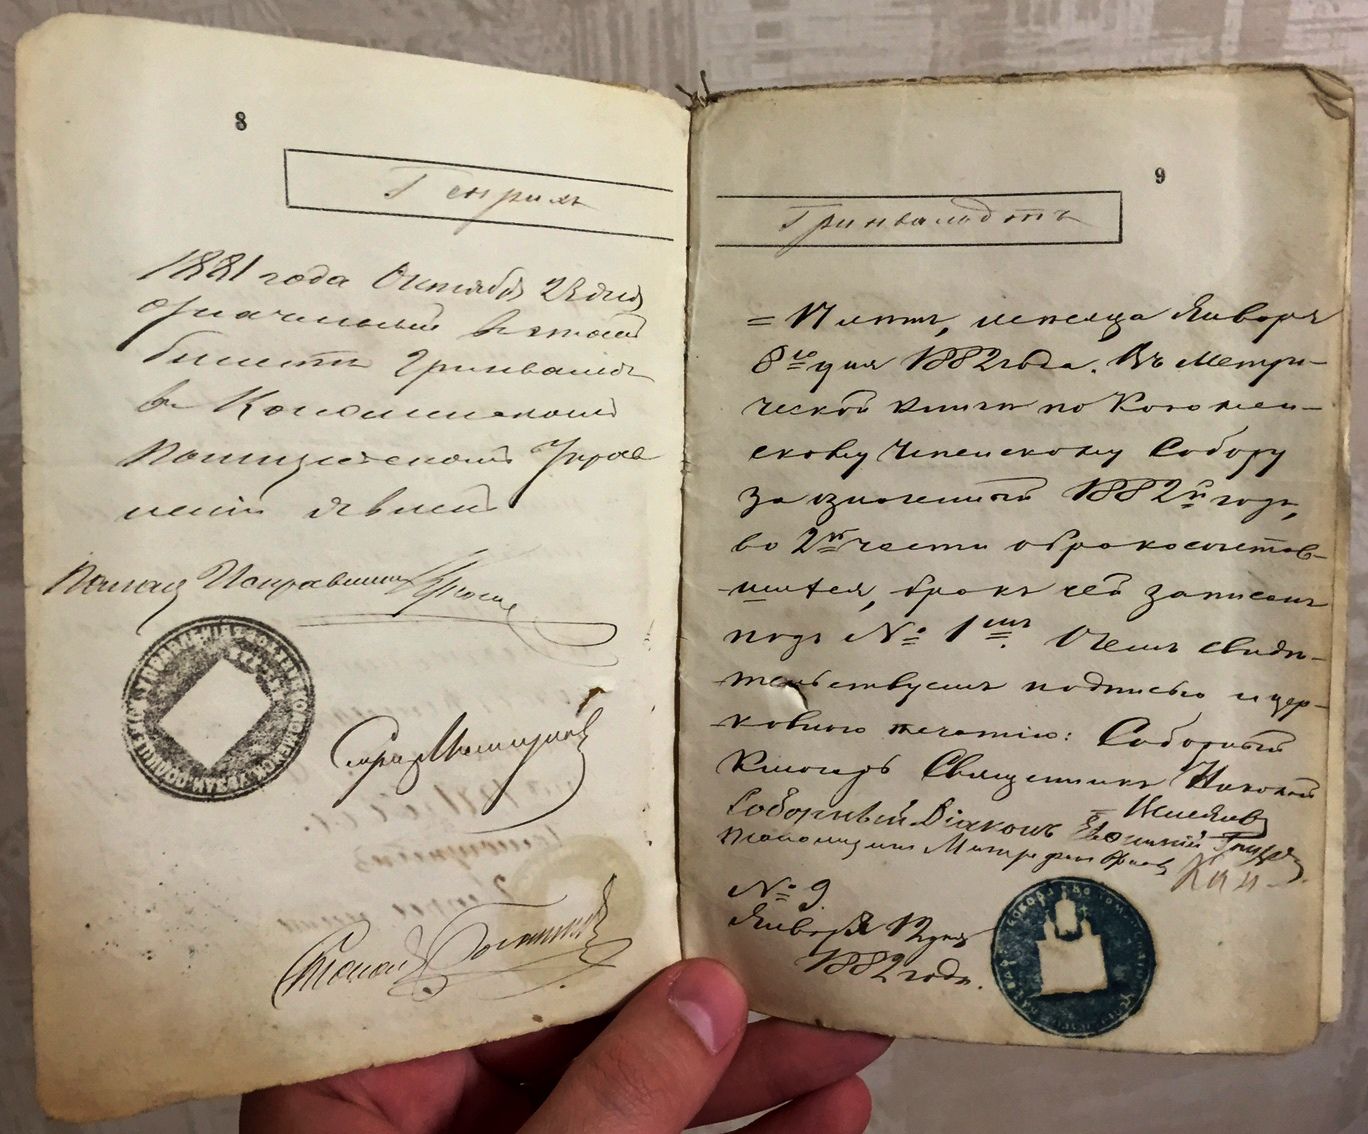 8
Генрихъ
1881 года Октября 23 дня
означенный в этомъ
билетѣ Гринвальдъ
в Коломенскомъ
Полицейскомъ Управ
леніи явленъ
Полиц Исправникъ
Секретарь
9
Гринвальдтъ
= 17 лѣтъ, мѣсяца Января
8го дня 1882 года. Въ Метри-
ческой книгѣ по Коломен-
скому Успенскому Собору
за означенный 1882й годъ,
во 2й части о бракосочетав-
шихся, бракъ сей записанъ
подъ № 1мъ. О чемъ свидѣ-
тельствуемъ подписью и цер-
ковною печатію: Соборный
Ключарь Священникъ Николай
Соборный Діаконъ Евгеній
Псаломщикъ Митрофанъ
№ 9.
Января 12 дня
1882 года.